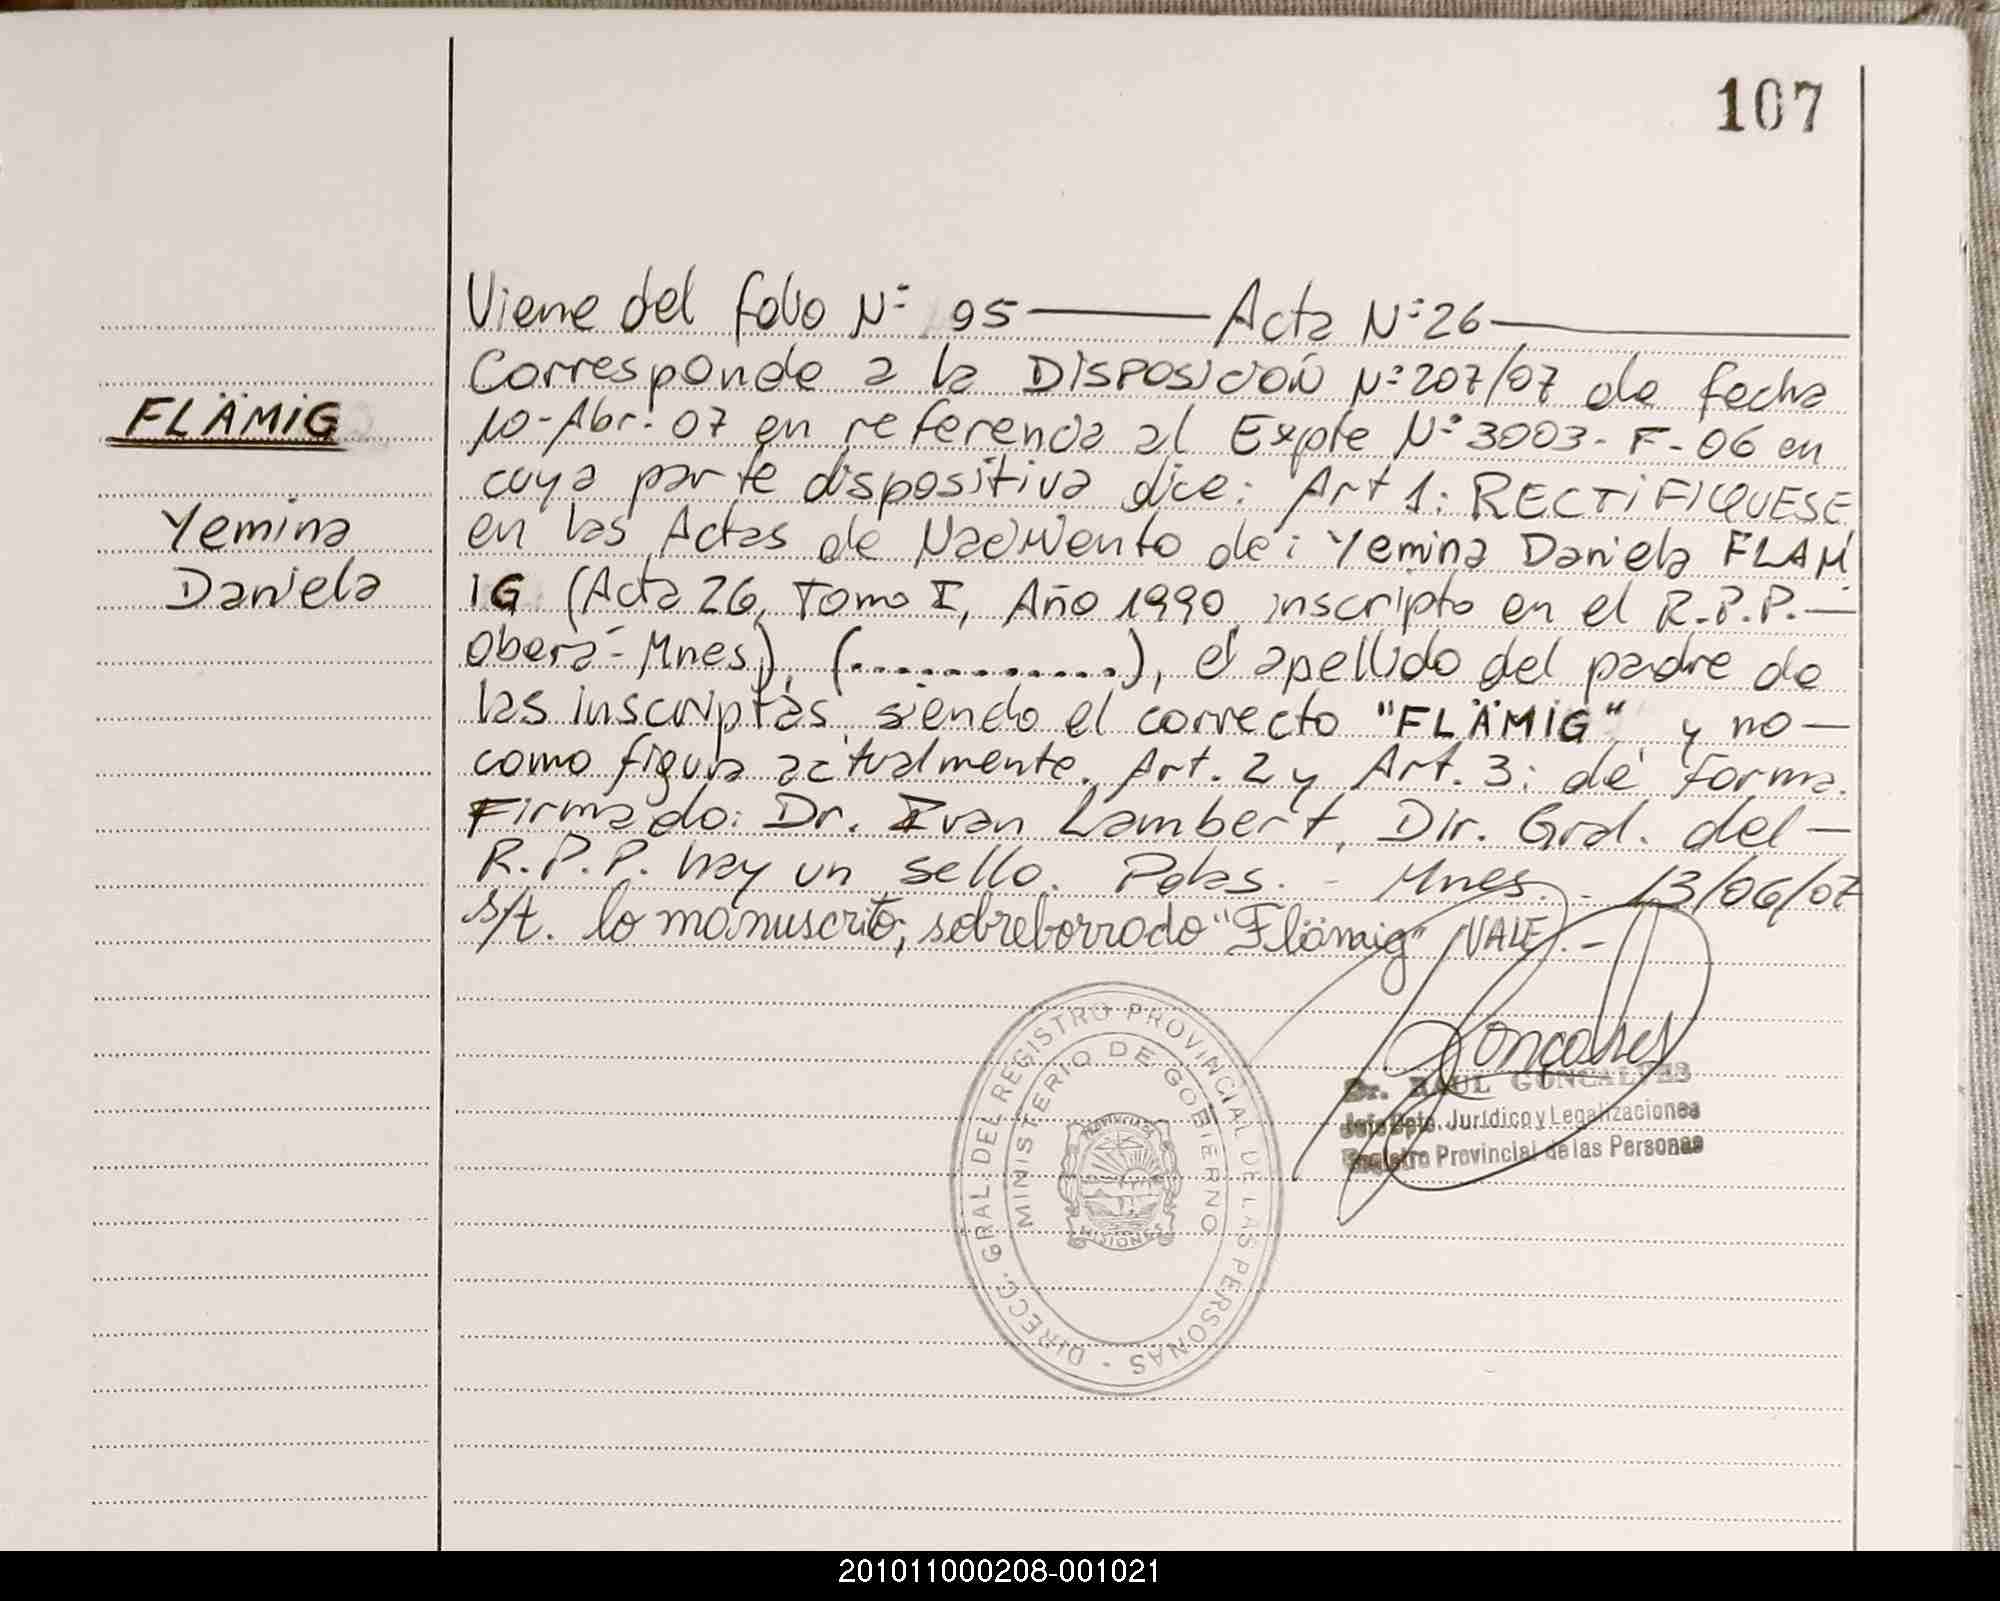 107
Viene del folio Nº 95 ——— Acta Nº 26 ———
Corresponde a la DISPOSICIÓN Nº 207/07 de fecha
FLÄMIG
10-Abr. 07 en referencia al Expte Nº 3003-F-06 en
cuya parte dispositiva dice: Art 1: RECTIFIQUESE
Yemina
en las Actas de Nacimiento de: Yemina Daniela FLAM
Daniela
IG (Acta 26, Tomo I, Año 1990, inscripto en el R.P.P.—
Oberá-Mnes), (............), el apellido del padre de
las inscriptas, siendo el correcto "FLÄMIG", y no—
como figura actualmente. Art. 2 y Art. 3: de forma.
Firmado: Dr. Ivan Lambert, Dir. Gral. del—
R.P.P. hay un sello. Pdas. - Mnes. - 13/06/07
s/t. lo manuscrito; sobreborrado "Flämig" VALE.-
Goncalves
Dr. RAUL GONCALVES
Jefe Dpto. Jurídico y Legalizaciones
Registro Provincial de las Personas
DIRECC. GRAL. DEL REGISTRO PROVINCIAL DE LAS PERSONAS
MINISTERIO DE GOBIERNO
PROVINCIA
MISIONES
201011000208-001021